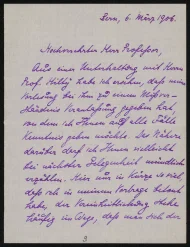 Bern, 6 März 1906.
Hochverehrter Herr Professor,
Aus einer Unterhaltung mit Herrn
Prof. Hilty habe ich erfahren, dass mein
Vortrag bei ihm zu einem Missver-
ständnis Veranlassung gegeben hat,
von dem ich Ihnen auf alle Fälle
Kenntnis geben möchte. Das Nähere
darüber darf ich Ihnen vielleicht
bei nächster Gelegenheit mündlich
erzählen. Hier nur in Kürze so viel,
dass ich in meinem Vortrage betont
habe, der
häufig im Auge, dass man sich der